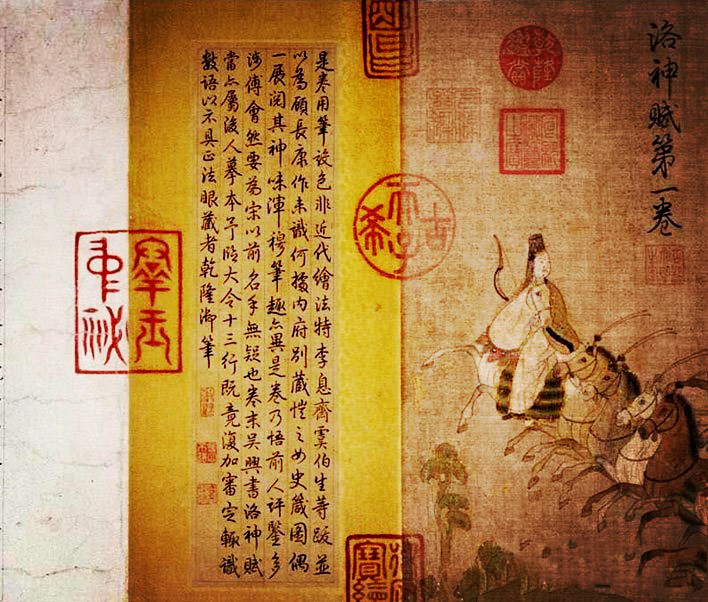 洛神賦第一卷
乾隆鑒賞
古希天子
是卷用筆設色非近代繪法特李息齋虞伯生等跋並
以為顧長康作未識何據內府別藏愷之女史箴圖偶
一展閱其神味渾穆筆趣亦異是卷乃悟前人評鑒多
涉傅會然要為宋以前名手無疑也卷末吳興書洛神賦
當亦屬後人摹本予臨大令十三行既竟復加審定輒識
數語以示具正法眼藏者乾隆御筆